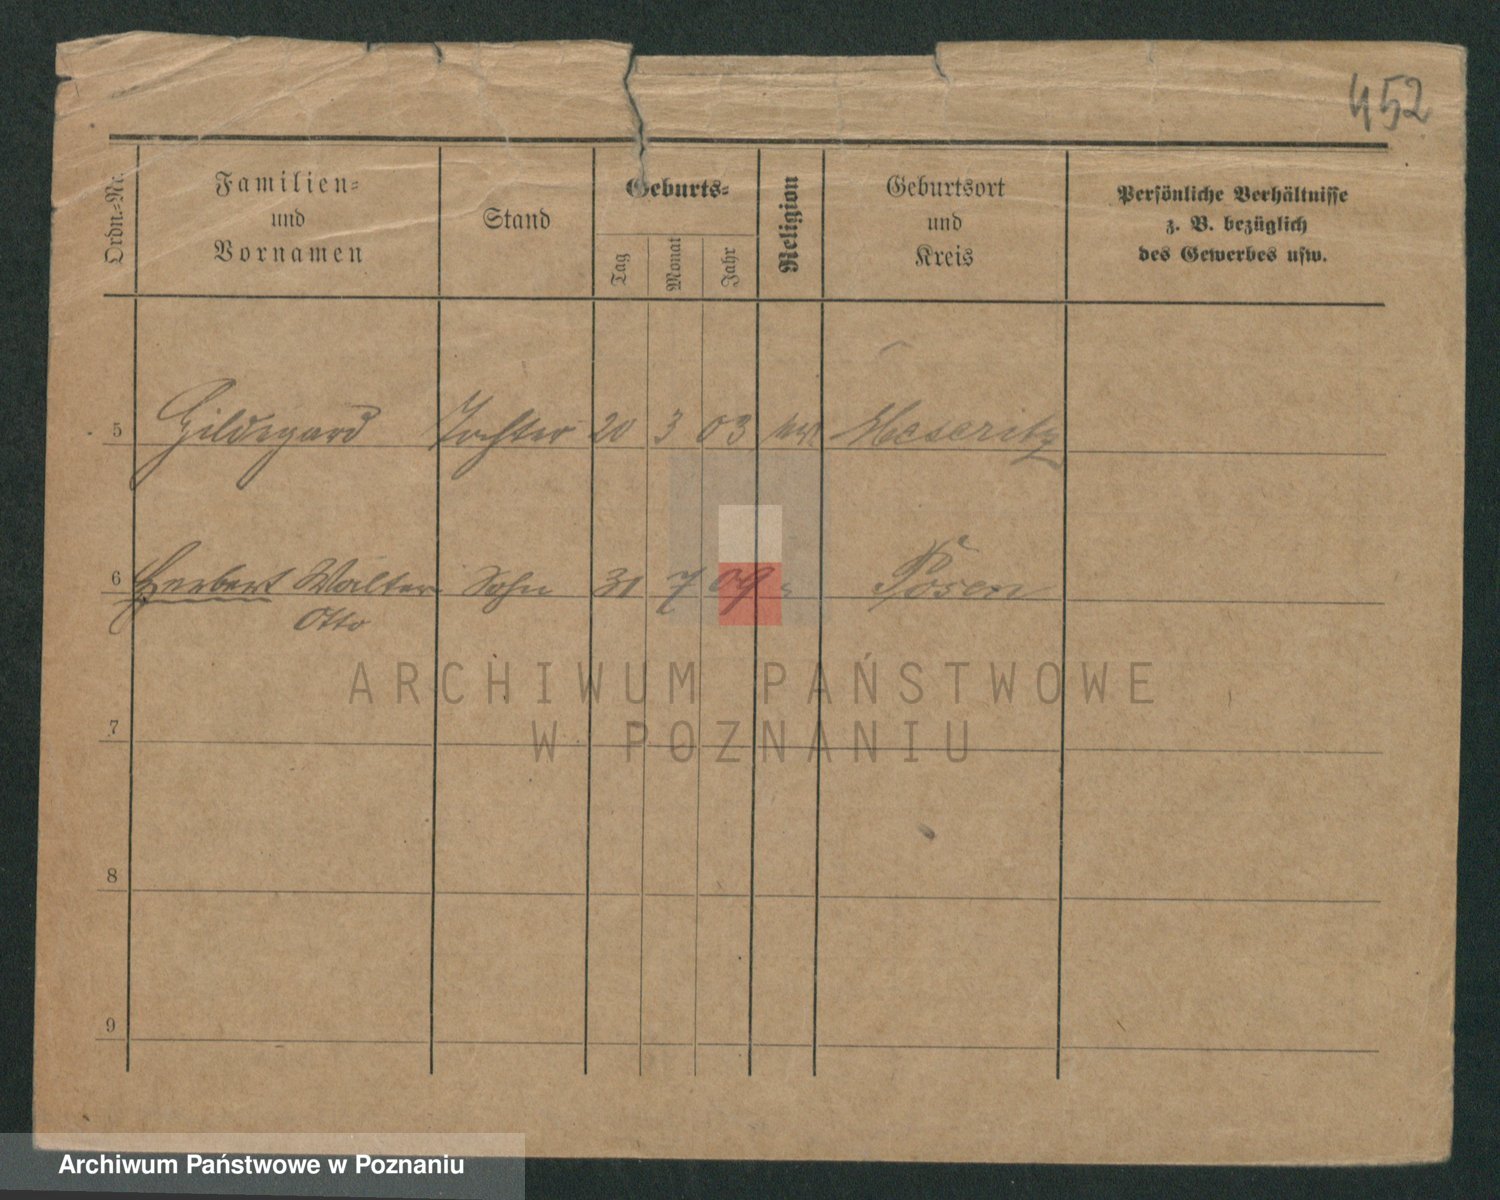 452
Ordn.-Nr.
Familien-
und
Vornamen
Stand
Geburts-
Tag
Monat
Jahr
Religion
Geburtsort
und
Kreis
Persönliche Verhältnisse
z. B. bezüglich
des Gewerbes usw.
5 Hildegard Tochter 20 3 03 Meseritz
6 Herbert Walter Sohn 31 7 09 Posen
Otto
7
8
9
ARCHIWUM PAŃSTWOWE
W POZNANIU
Archiwum Państwowe w Poznaniu